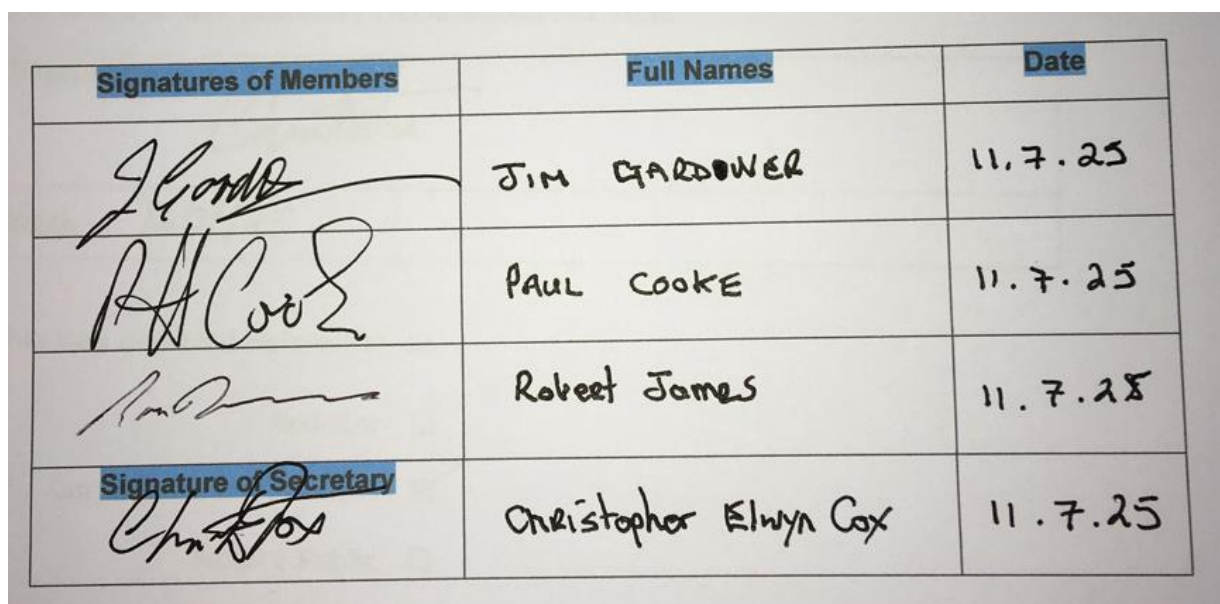 Signatures of Members Full Names Date
JIM GARDOWER 11.7.25
PAUL COOKE 11.7.25
Robert James 11.7.25
Signature of Secretary
Christopher Elwyn Cox 11.7.25